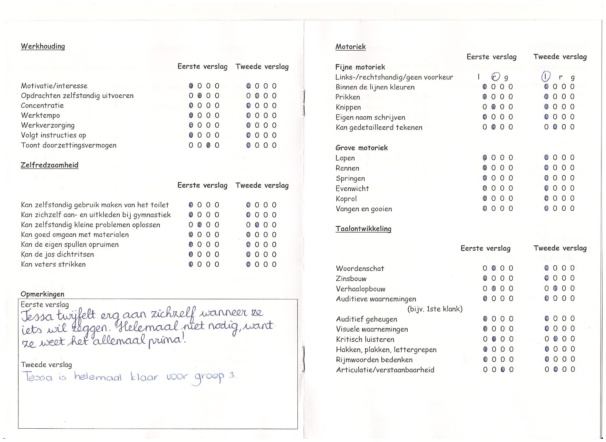 Werkhouding
Eerste verslag Tweede verslag
Motivatie/interesse
Opdrachten zelfstandig uitvoeren
Concentratie
Werktempo
Werkverzorging
Volgt instructies op
Toont doorzettingsvermogen
Zelfredzaamheid
Eerste verslag Tweede verslag
Kan zelfstandig gebruik maken van het toilet
Kan zichzelf aan- en uitkleden bij gymnastiek
Kan zelfstandig kleine problemen oplossen
Kan goed omgaan met materialen
Kan de eigen spullen opruimen
Kan de jas dichtritsen
Kan veters strikken
Opmerkingen
Eerste verslag
Tessa twijfelt erg aan zichzelf wanneer ze
iets wil zeggen. Helemaal niet nodig, want
ze weet het allemaal prima!
Tweede verslag
Tessa is helemaal klaar voor groep 3
Motoriek
Eerste verslag Tweede verslag
Fijne motoriek
Links-/rechtshandig/geen voorkeur l r g l r g
Binnen de lijnen kleuren
Prikken
Knippen
Eigen naam schrijven
Kan gedetailleerd tekenen
Grove motoriek
Lopen
Rennen
Springen
Evenwicht
Koprol
Vangen en gooien
Taalontwikkeling
Eerste verslag Tweede verslag
Woordenschat
Zinsbouw
Verhaalopbouw
Auditieve waarnemingen
(bijv. 1ste klank)
Auditief geheugen
Visuele waarnemingen
Kritisch luisteren
Hakken, plakken, lettergrepen
Rijmwoorden bedenken
Articulatie/verstaanbaarheid